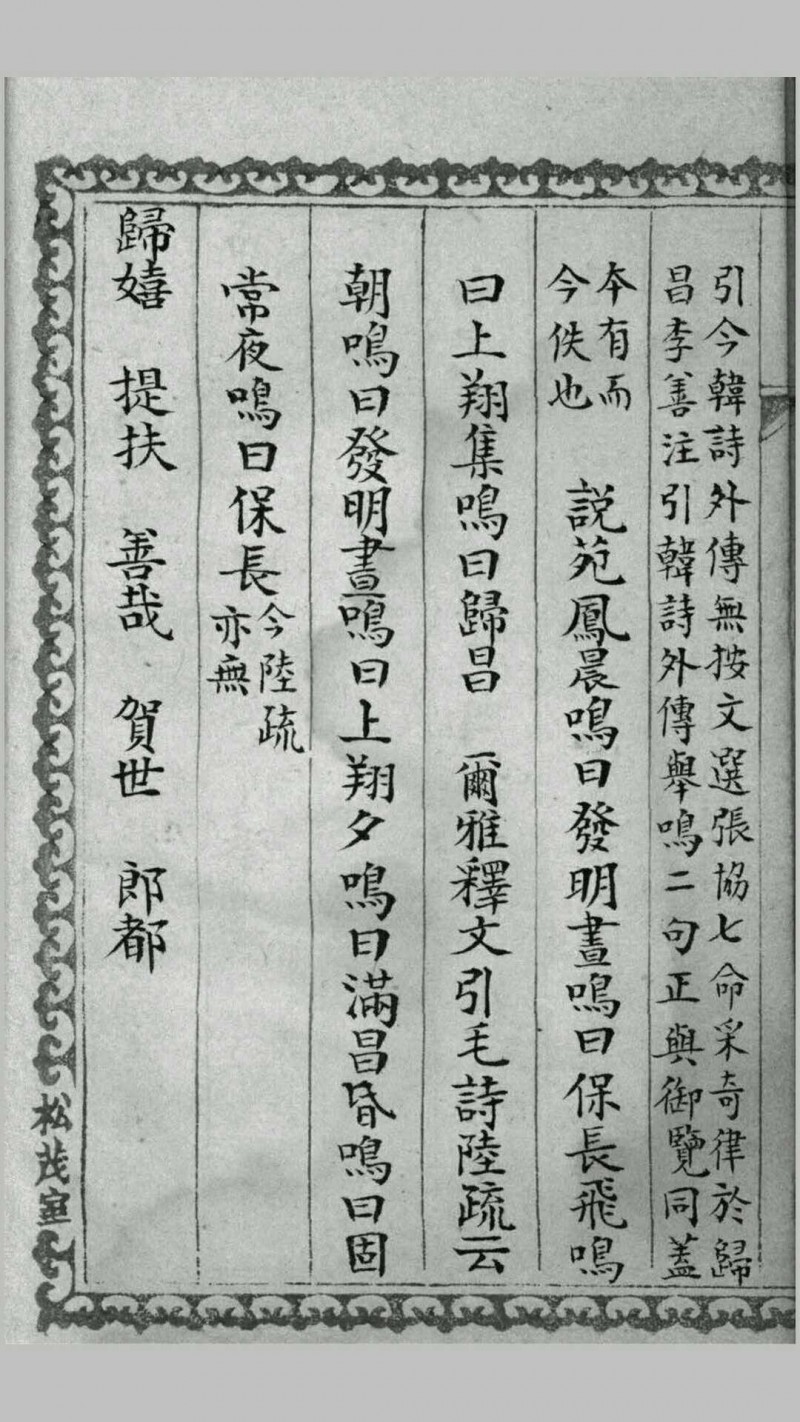 引今韓詩外傳無按文選張協七命采奇律於歸
昌李善注引韓詩外傳舉鳴二句正與御覽同蓋
本有而
今佚也
說苑鳳晨鳴曰發明晝鳴曰保長飛鳴
曰上翔集鳴曰歸昌　爾雅釋文引毛詩陸疏云
朝鳴曰發明晝鳴曰上翔夕鳴曰滿昌昏鳴曰固
常夜鳴曰保長
今陸疏
亦無
歸嬉　提扶　善哉　賀世　郎都
松茂室